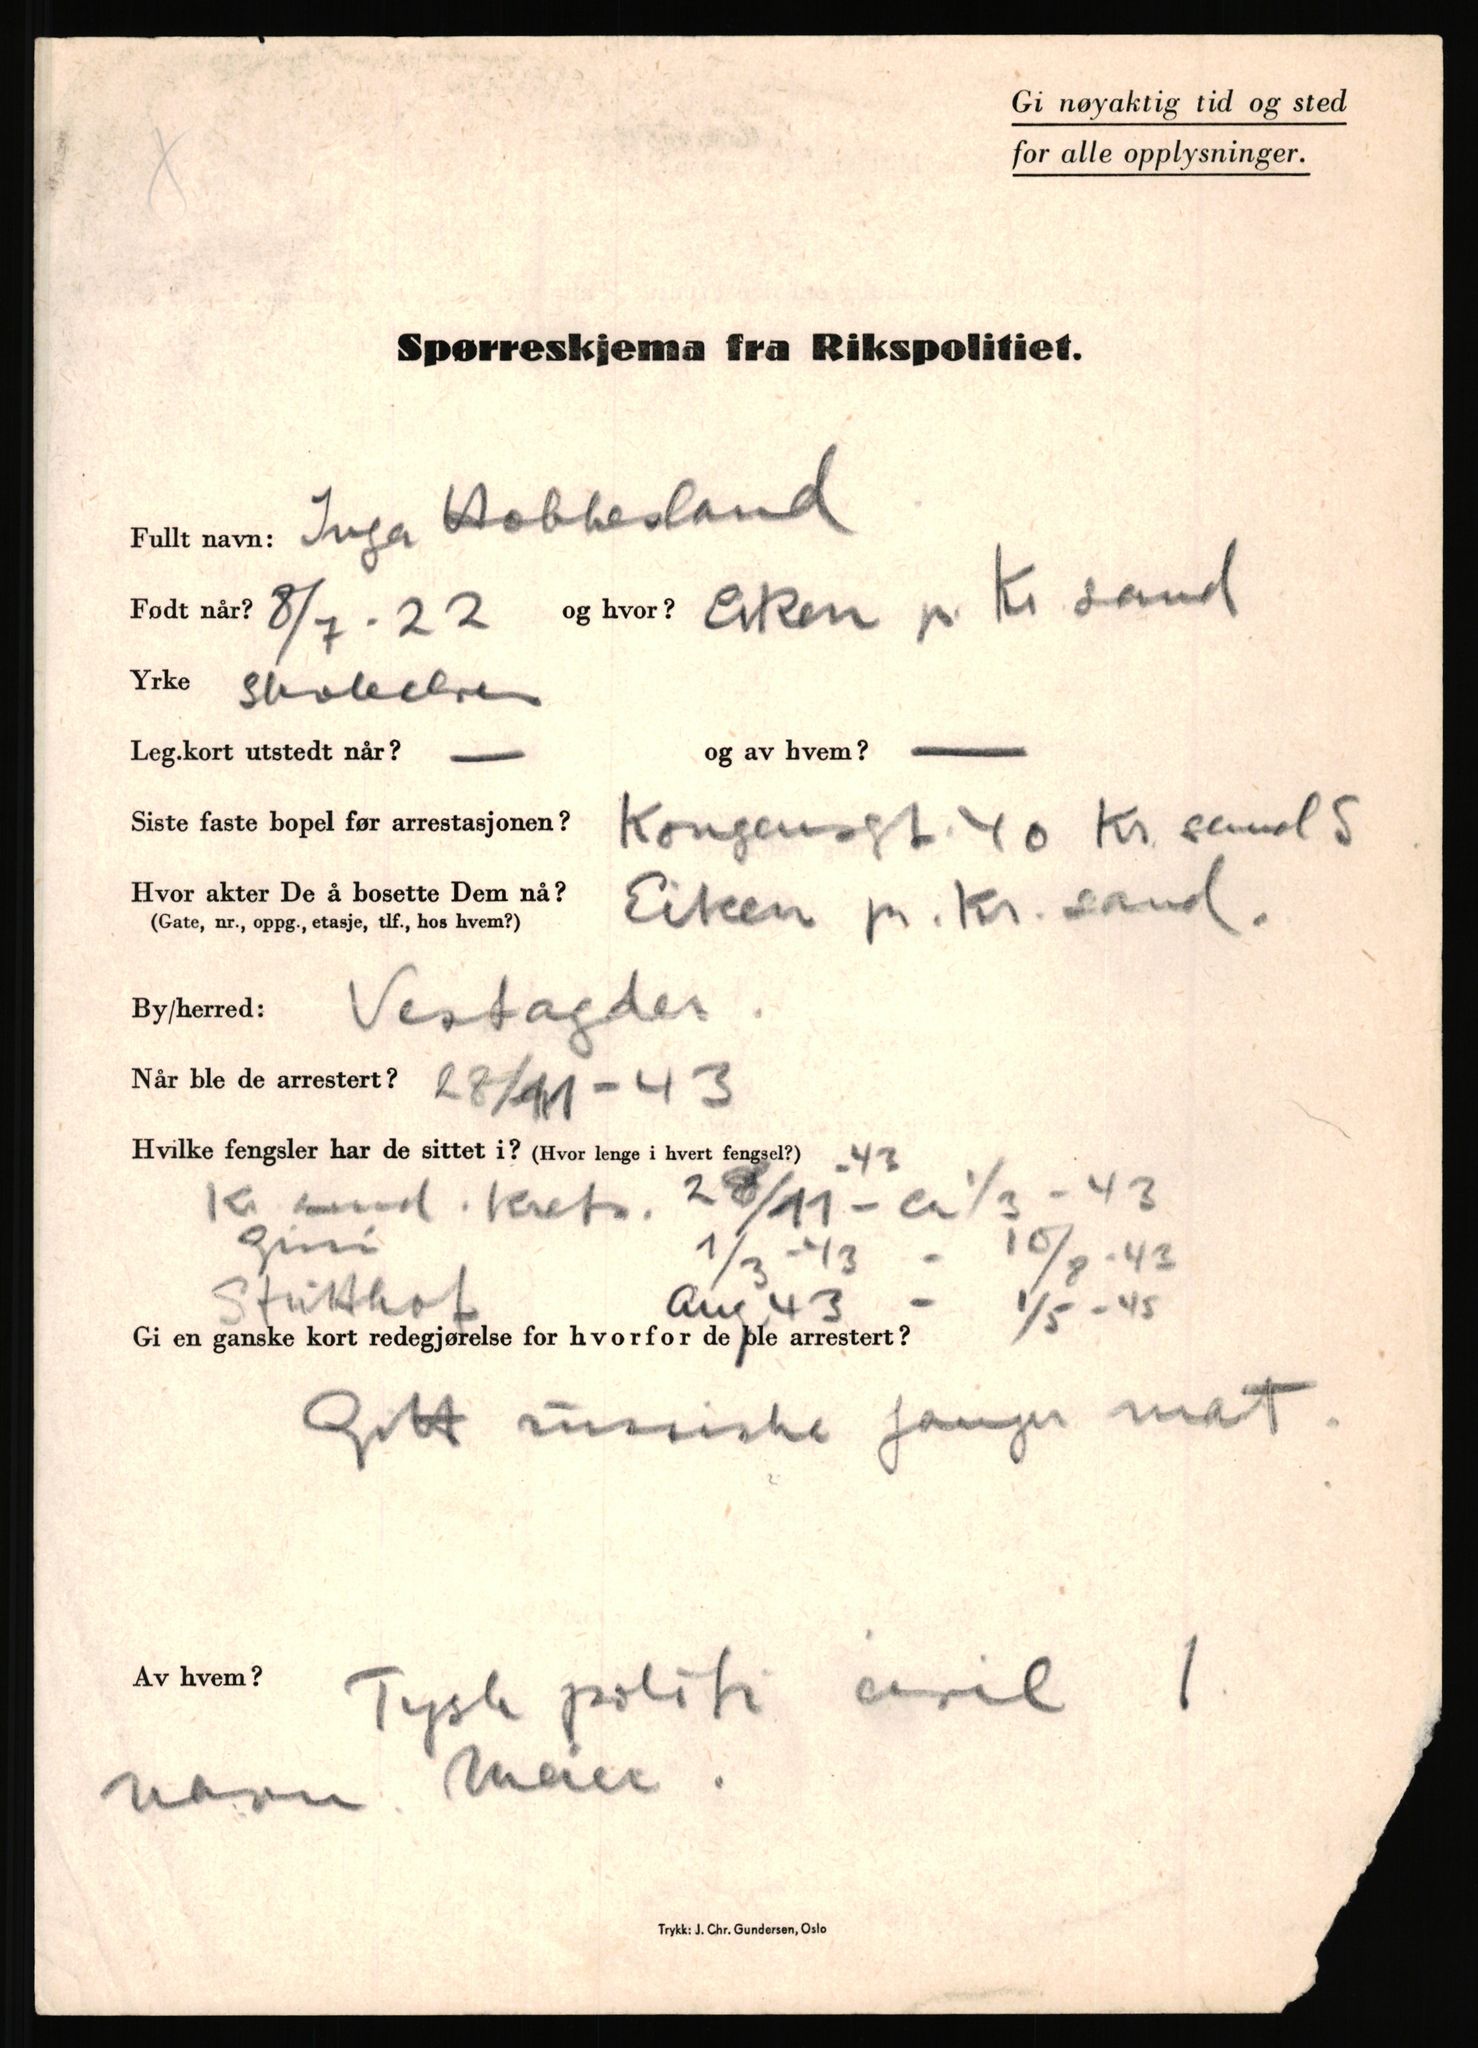 Gi nøyaktig tid og sted
for alle opplysninger.
Spørreskjema fra Rikspolitiet.
Fullt navn: Inga Hobbesland
Født når? 8/7 - 22 og hvor? Eiken pr. Kr. sand
Yrke skoleelev
Leg.kort utstedt når? — og av hvem? —
Siste faste bopel før arrestasjonen? Kongensgt. 40 Kr. sand S
Hvor akter De å bosette Dem nå? Eiken pr. Kr. sand.
(Gate, nr., oppg., etasje, tlf., hos hvem?)
By/herred: Vestagder.
Når ble de arrestert? 28/11 - 43
Hvilke fengsler har de sittet i? (Hvor lenge i hvert fengsel?)
Kr. sand. krets. 28/11 -43 - ca 1/3 - 43
Grini 1/3 - 43 - 10/8 - 43
Stutthof Aug 43 - 1/5 - 45
Gi en ganske kort redegjørelse for hvorfor de ble arrestert?
Gitt russiske fanger mat.
Av hvem? Tysk politi i civil
navn. Meier.
Trykk: J. Chr. Gundersen, Oslo